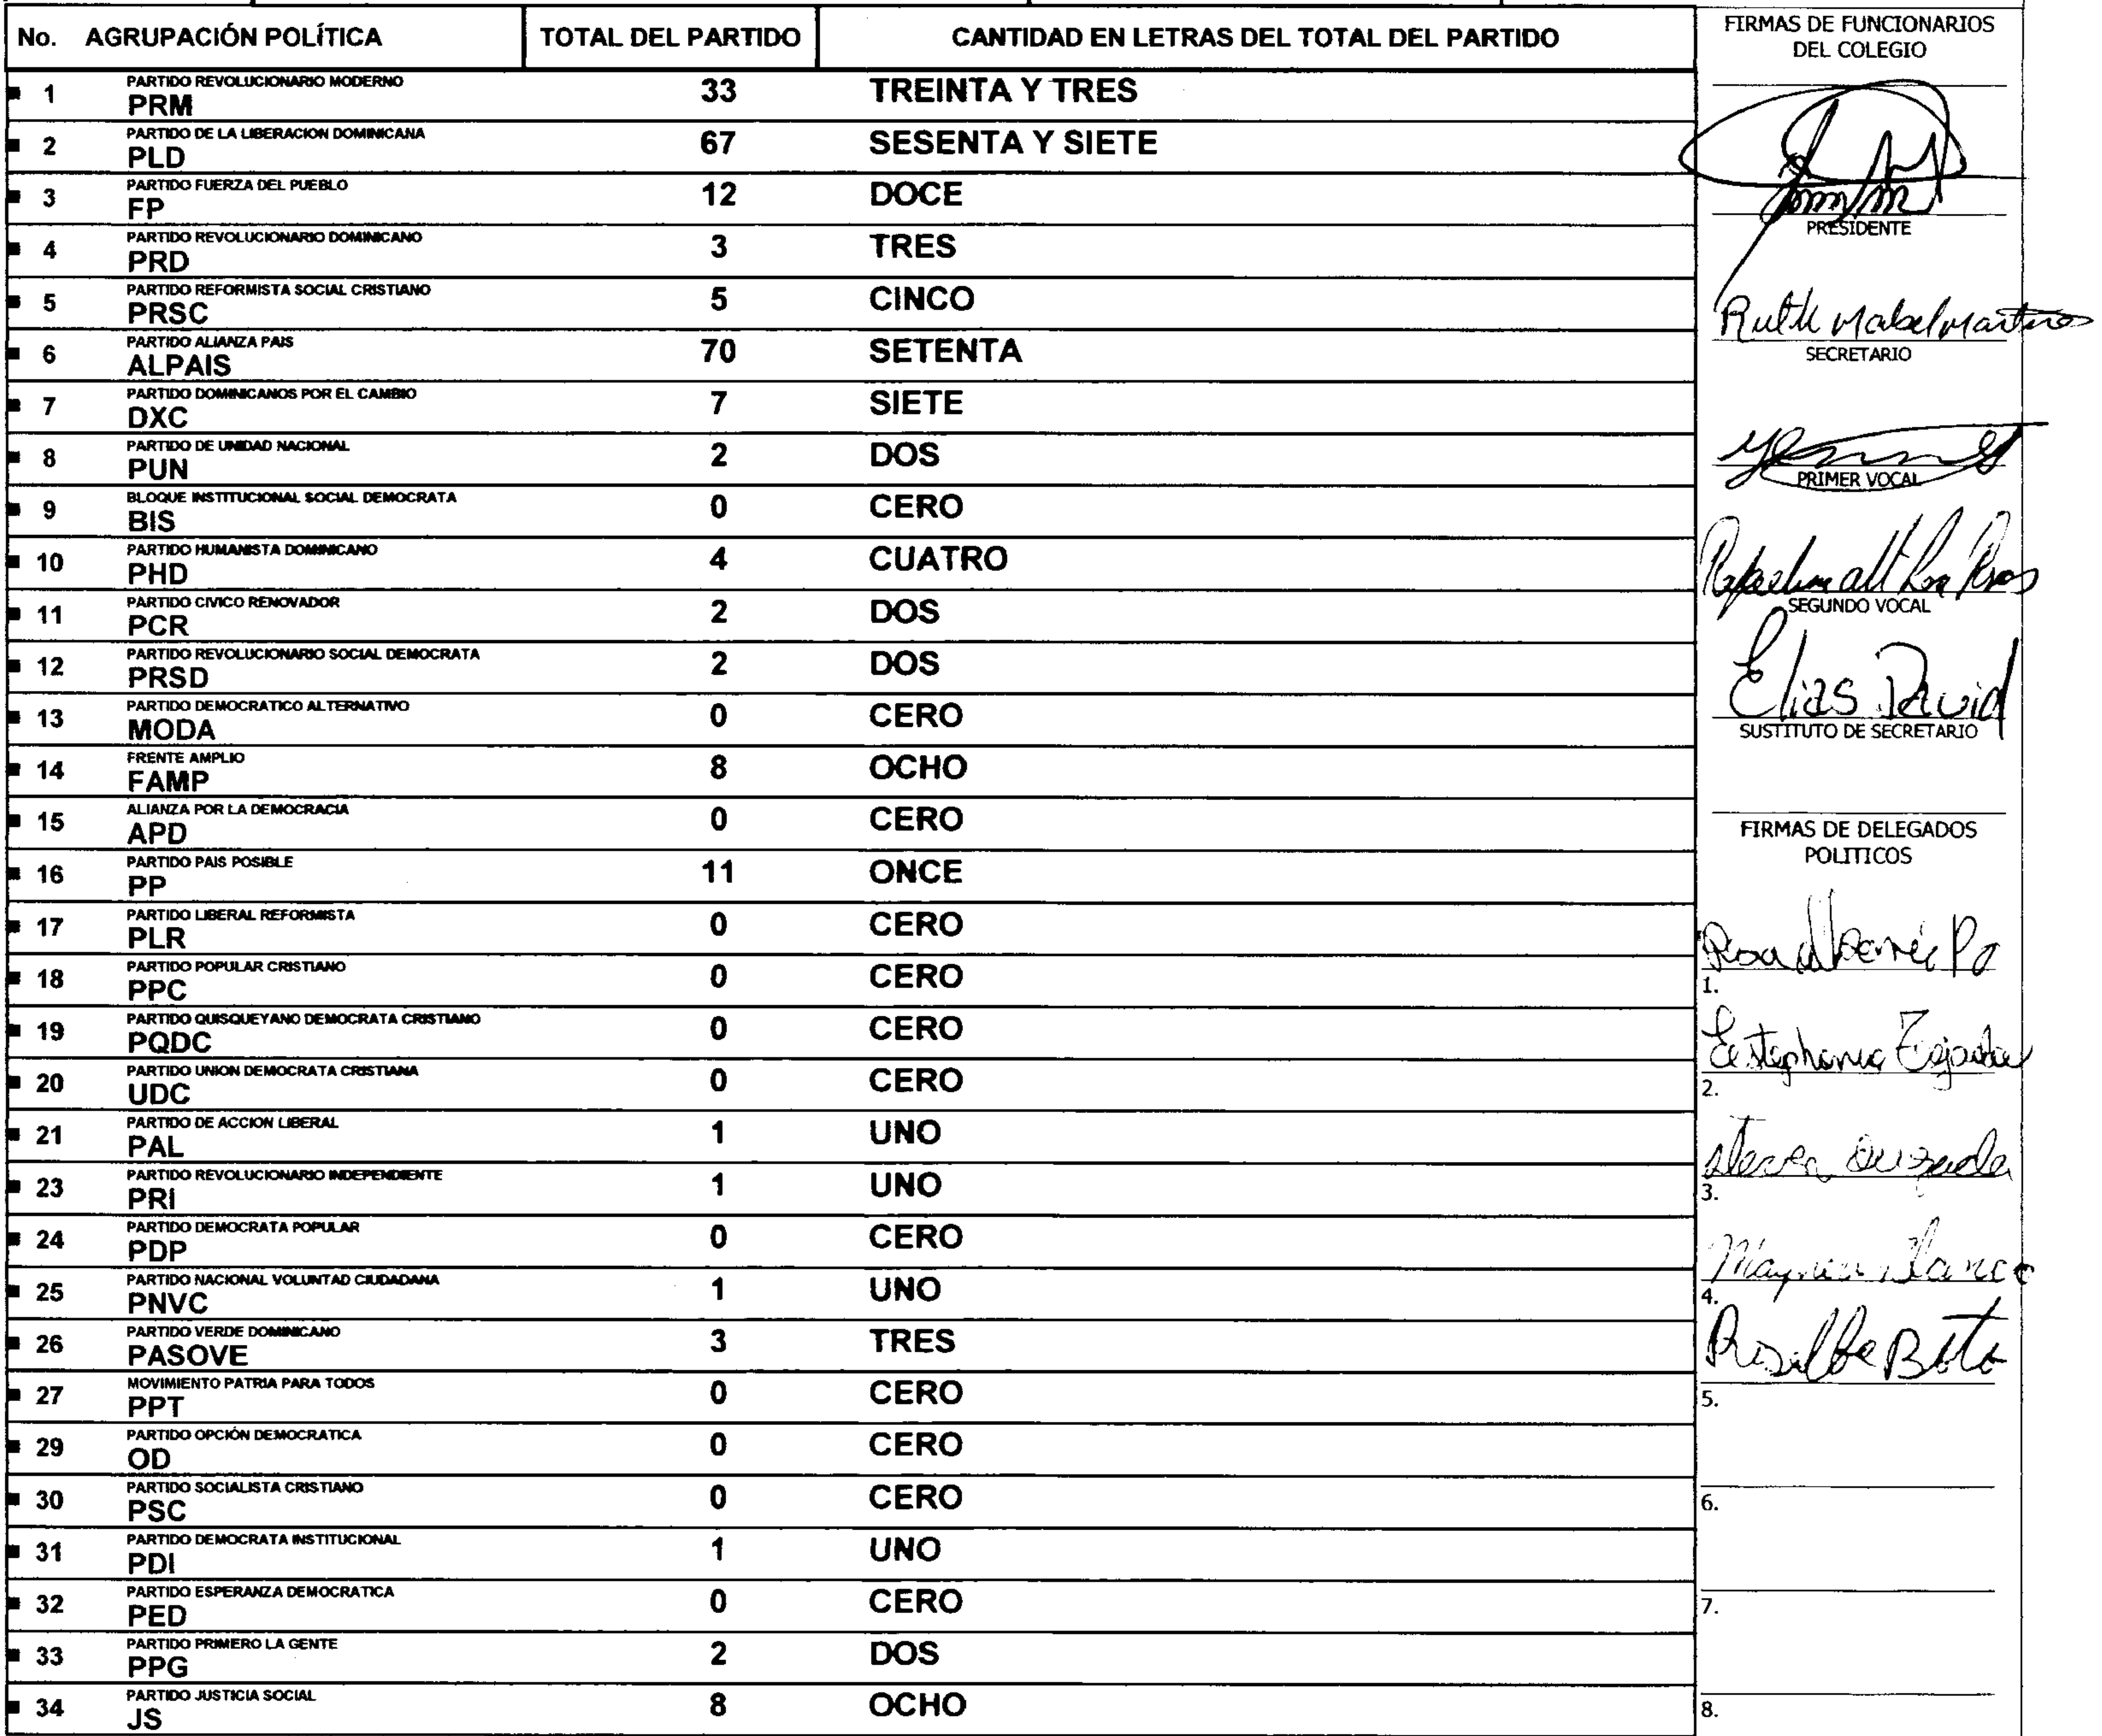 No. AGRUPACIÓN POLÍTICA TOTAL DEL PARTIDO CANTIDAD EN LETRAS DEL TOTAL DEL PARTIDO
PARTIDO REVOLUCIONARIO MODERNO
1 PRM 33 TREINTA Y TRES
PARTIDO DE LA LIBERACION DOMINICANA
2 PLD 67 SESENTA Y SIETE
PARTIDO FUERZA DEL PUEBLO
3 FP 12 DOCE
PARTIDO REVOLUCIONARIO DOMINICANO
4 PRD 3 TRES
PARTIDO REFORMISTA SOCIAL CRISTIANO
5 PRSC 5 CINCO
PARTIDO ALIANZA PAIS
6 ALPAIS 70 SETENTA
PARTIDO DOMINICANOS POR EL CAMBIO
7 DXC 7 SIETE
PARTIDO DE UNIDAD NACIONAL
8 PUN 2 DOS
BLOQUE INSTITUCIONAL SOCIAL DEMOCRATA
9 BIS 0 CERO
PARTIDO HUMANISTA DOMINICANO
10 PHD 4 CUATRO
PARTIDO CIVICO RENOVADOR
11 PCR 2 DOS
PARTIDO REVOLUCIONARIO SOCIAL DEMOCRATA
12 PRSD 2 DOS
PARTIDO DEMOCRATICO ALTERNATIVO
13 MODA 0 CERO
FRENTE AMPLIO
14 FAMP 8 OCHO
ALIANZA POR LA DEMOCRACIA
15 APD 0 CERO
PARTIDO PAIS POSIBLE
16 PP 11 ONCE
PARTIDO LIBERAL REFORMISTA
17 PLR 0 CERO
PARTIDO POPULAR CRISTIANO
18 PPC 0 CERO
PARTIDO QUISQUEYANO DEMOCRATA CRISTIANO
19 PQDC 0 CERO
PARTIDO UNION DEMOCRATA CRISTIANA
20 UDC 0 CERO
PARTIDO DE ACCION LIBERAL
21 PAL 1 UNO
PARTIDO REVOLUCIONARIO INDEPENDIENTE
23 PRI 1 UNO
PARTIDO DEMOCRATA POPULAR
24 PDP 0 CERO
PARTIDO NACIONAL VOLUNTAD CIUDADANA
25 PNVC 1 UNO
PARTIDO VERDE DOMINICANO
26 PASOVE 3 TRES
MOVIMIENTO PATRIA PARA TODOS
27 PPT 0 CERO
PARTIDO OPCIÓN DEMOCRATICA
29 OD 0 CERO
PARTIDO SOCIALISTA CRISTIANO
30 PSC 0 CERO
PARTIDO DEMOCRATA INSTITUCIONAL
31 PDI 1 UNO
PARTIDO ESPERANZA DEMOCRATICA
32 PED 0 CERO
PARTIDO PRIMERO LA GENTE
33 PPG 2 DOS
PARTIDO JUSTICIA SOCIAL
34 JS 8 OCHO
FIRMAS DE FUNCIONARIOS
DEL COLEGIO
PRESIDENTE
Ruth Mabel
SECRETARIO
PRIMER VOCAL
SEGUNDO VOCAL
Elias David
SUSTITUTO DE SECRETARIO
FIRMAS DE DELEGADOS
POLITICOS
Rosa
1.
2.
3.
4.
5.
6.
7.
8.